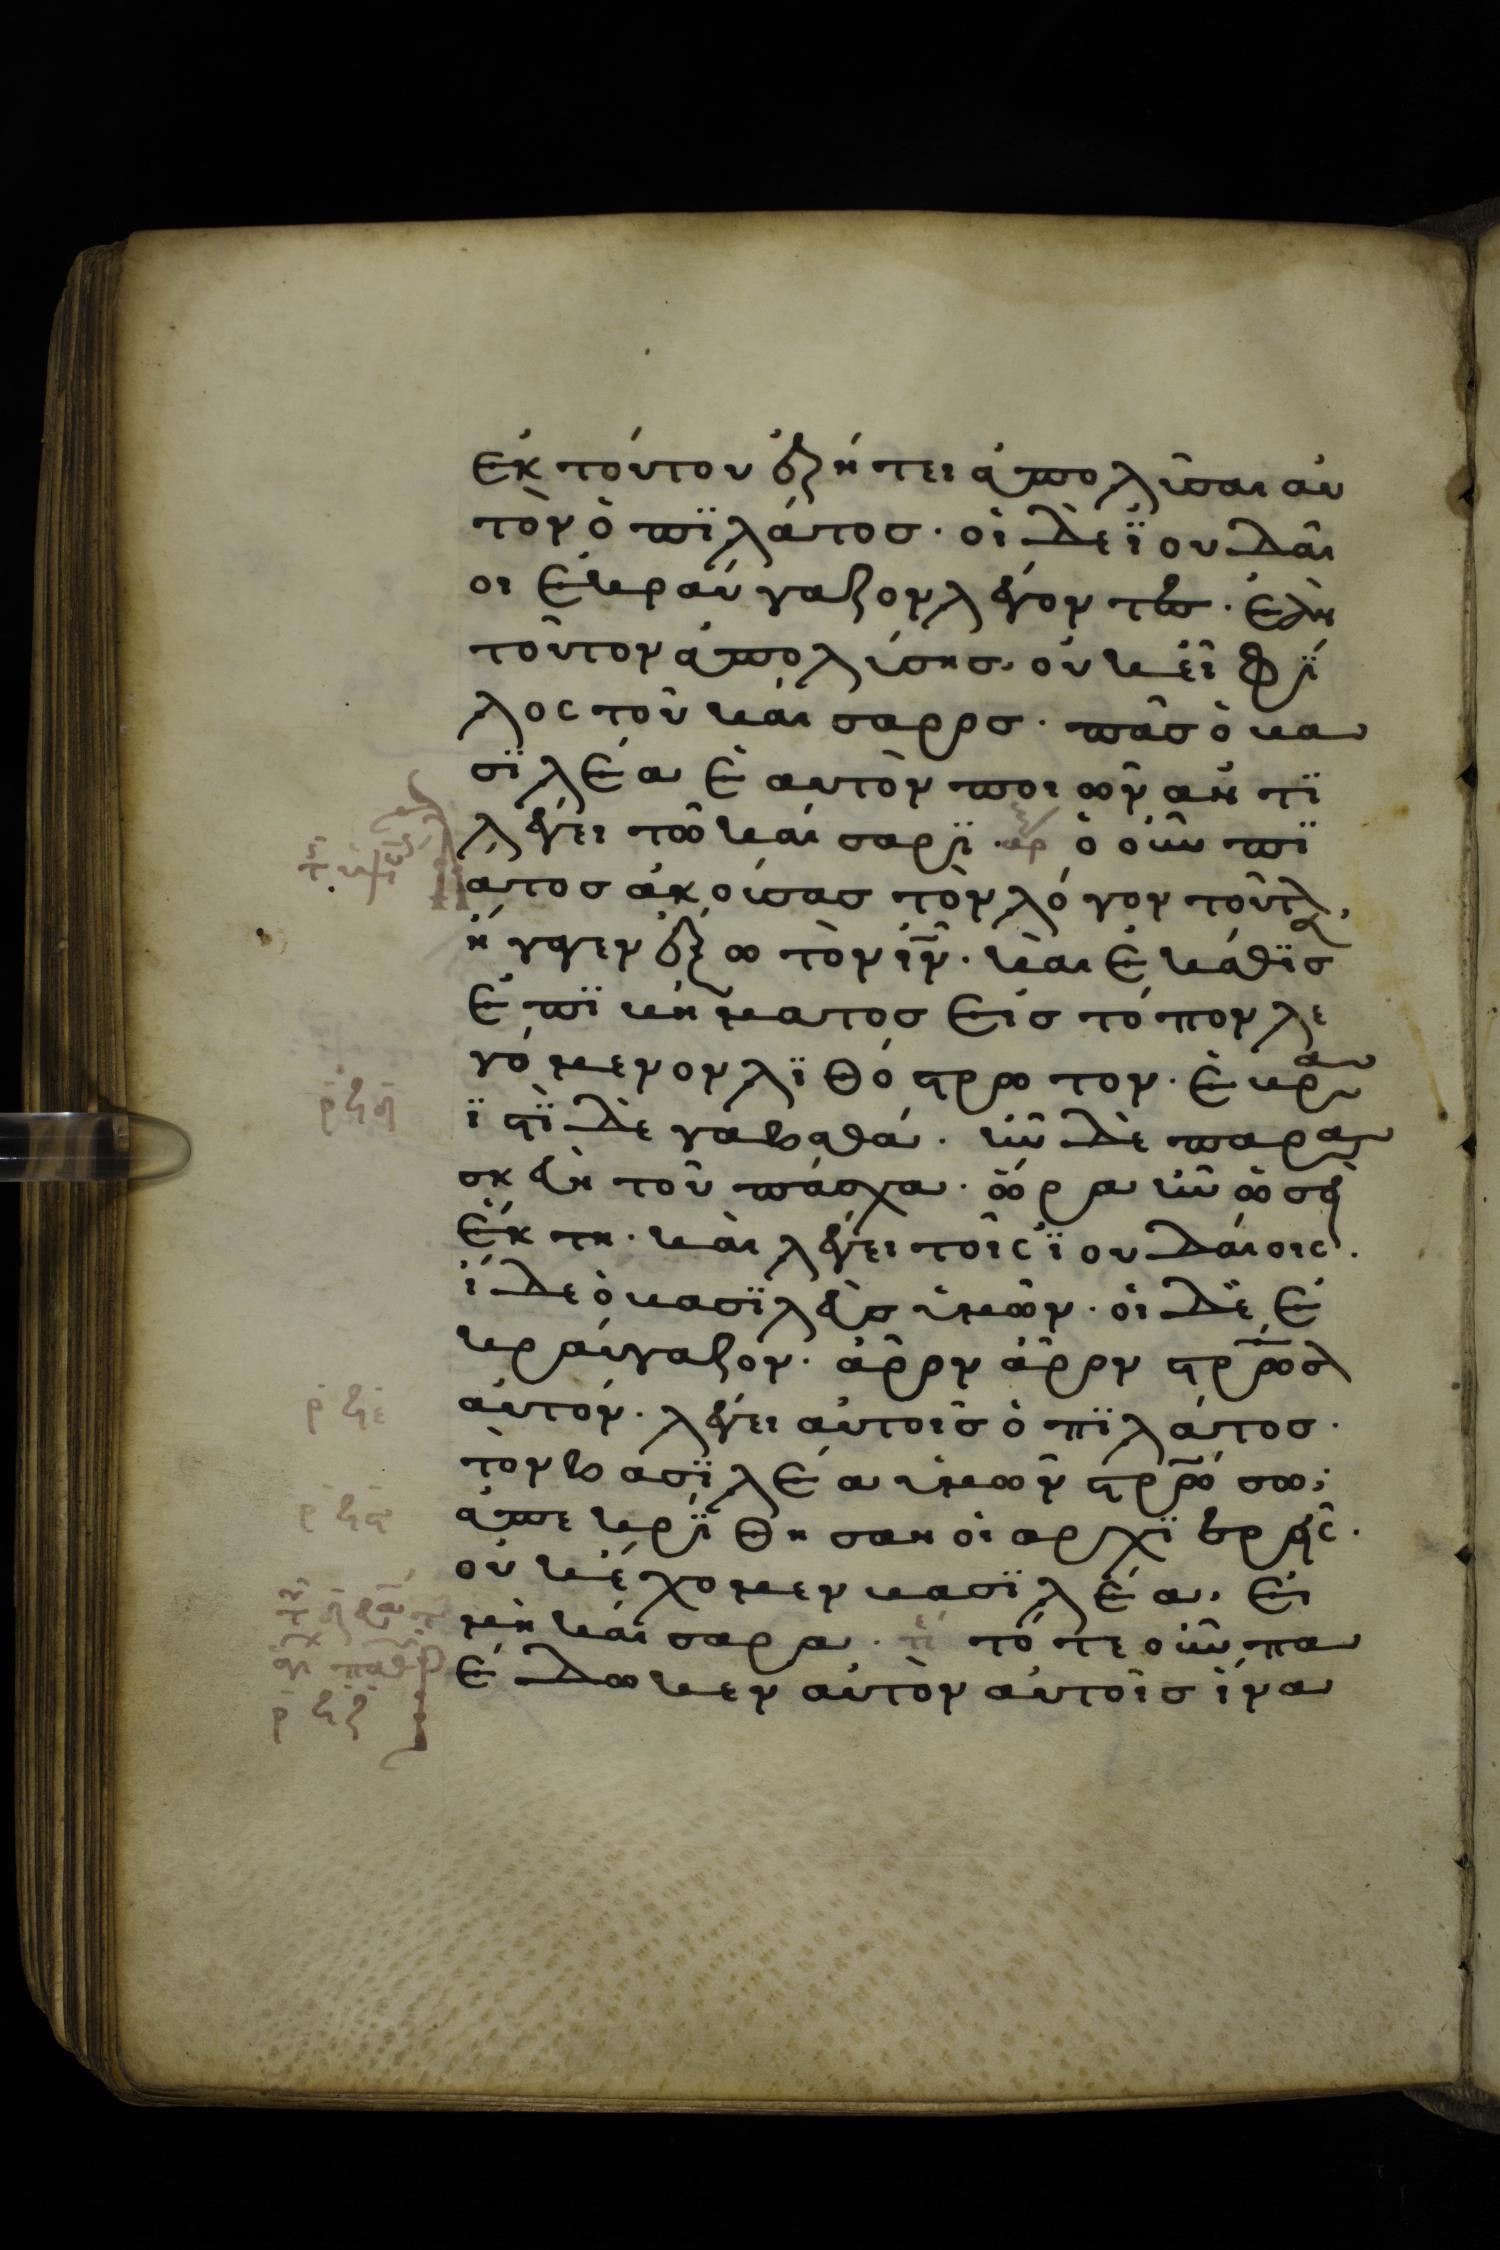 ἐκ τούτου ἐζήτει ἀπολῦσαι αὐ
τὸν ὁ πϊλάτος· οἱ δὲ ϊουδαῖ
οι ἐκραύγαζον λέγοντες· ἐὰν
τοῦτον ἀπολύσης, οὐκ εἶ φί
λος τοῦ καίσαρος· πᾶς ὁ βα
σϊλέα ἑαυτὸν ποιῶν ἀντϊ
λέγει τῶ καίσαρϊ· αρ ὁ οὖν πϊ
λατος ἀκούσας τὸν λόγον τοῦτ
ἤγαγεν ἔξω τὸν ιν· καὶ ἐκάθϊσ
ἐπϊ βήματος εἰς τόπον λε
γόμενον λϊθόστρωτον· ἑβρα
ϊστϊ δὲ γαββαθά· ἦν δὲ παρα
σκευὴ τοῦ πάσχα· ὥρα ἦν ὡσεὶ
ἕκτη· καὶ λέγει τοῖς ϊουδαίοις·
ἴδε ὁ βασϊλεὺς ὑμῶν· οἱ δὲ ἐ
κραύγαζον· ἆρον ἆρον στρωσ
αὐτόν· λέγει αὐτοῖς ὁ πϊλάτος·
τὸν βασϊλέα ὑμῶν στρώσω;
ἀπεκρϊθησαν οἱ αρχϊερεῖς·
οὐκ ἔχομεν βασϊλέα, εἰ
μὴ καίσαρα· τότε οὖν πα
ἔδωκεν αὐτὸν αὐτοῖς ἵνα